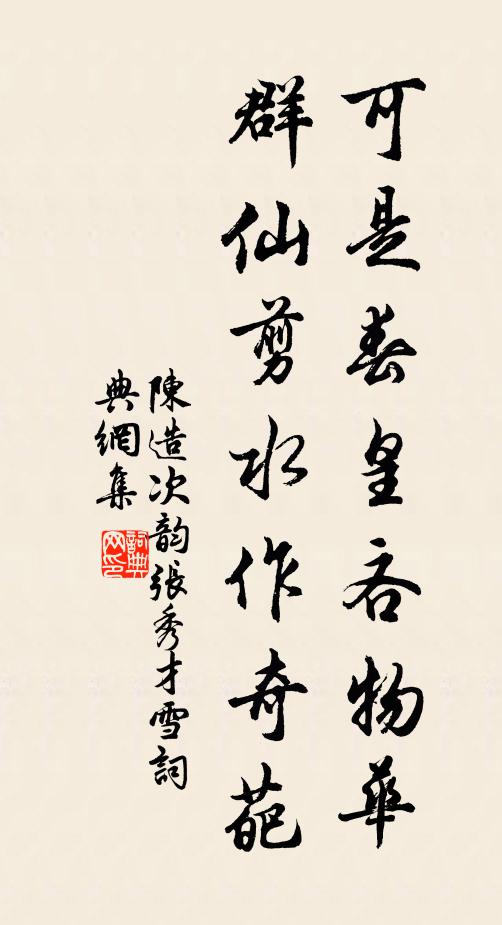 可是春皇吝物華
群仙剪水作奇葩
陳造次韵張秀才雪詞
典網集
詞典网印